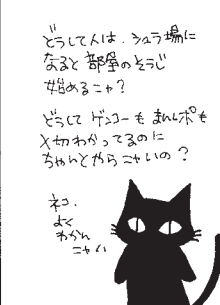 どうして人は、シュラ場に
なると 部屋のそうじ
始めるニャ?
どうして ゲンコーも まんレポも
〆切わかってるのに
ちゃんとやらニャいの?
ネコ、
よく
わかん
ニャい